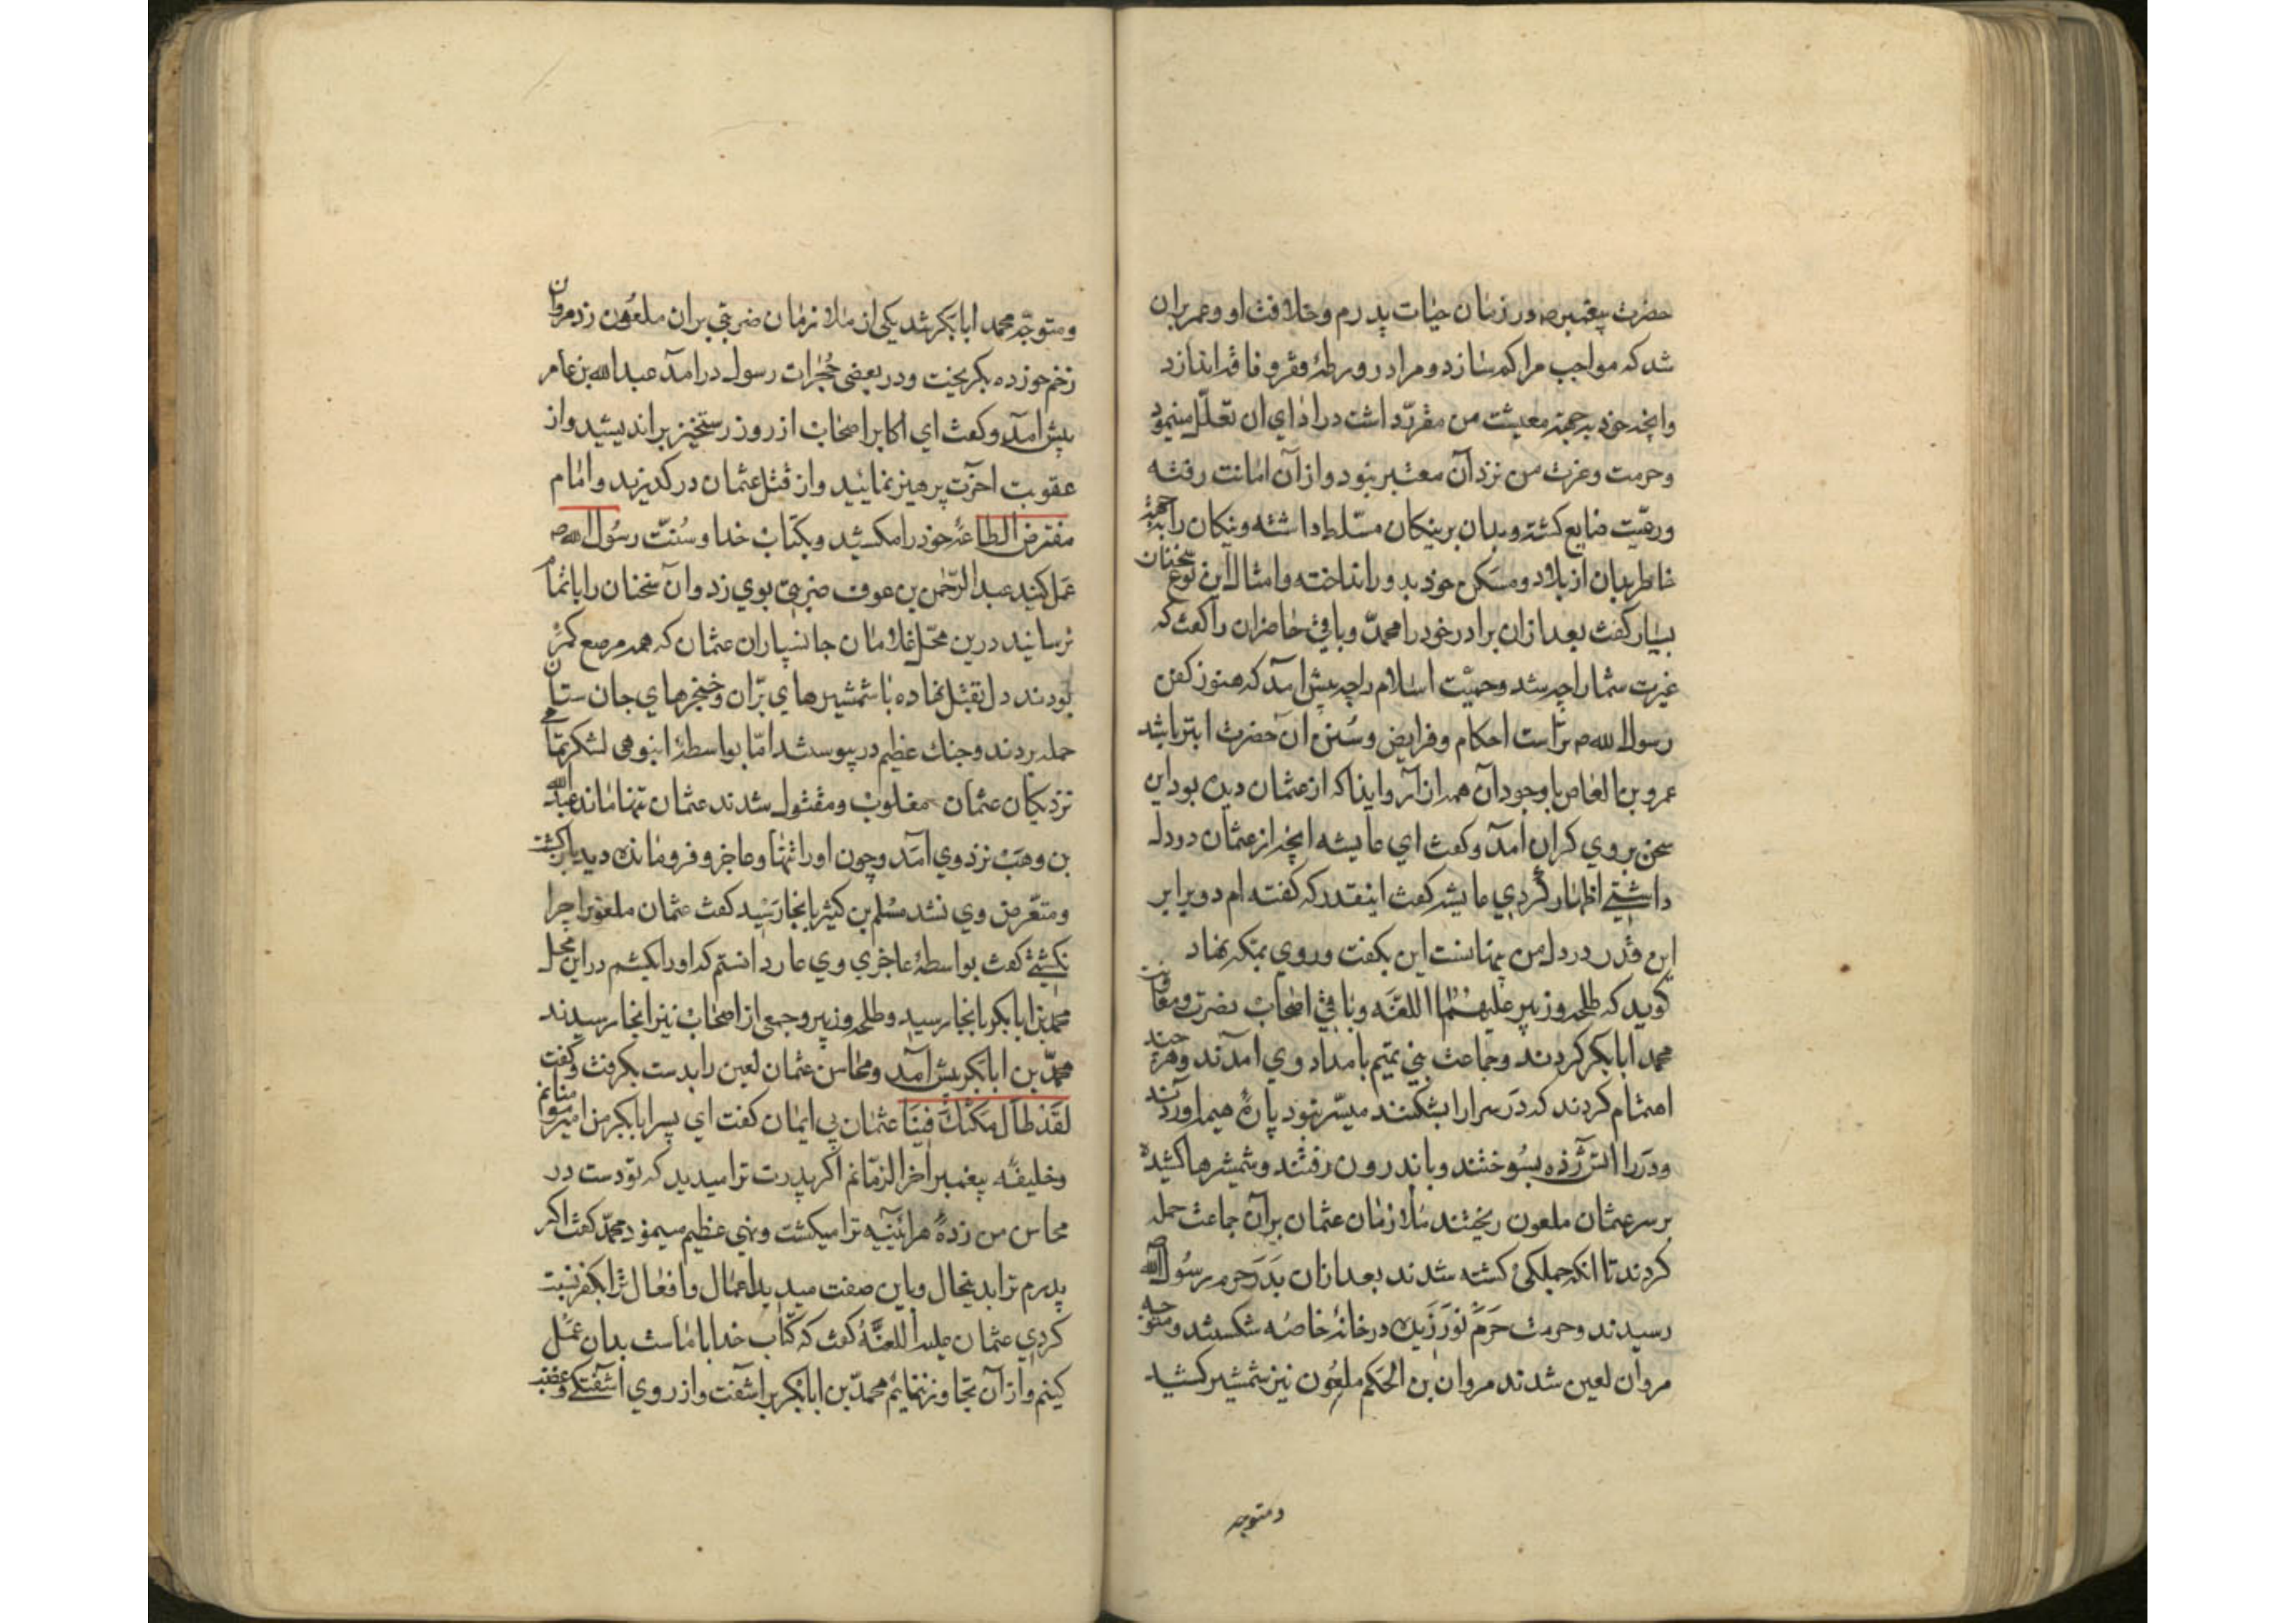 حضرت پیغمبر ص و در زمان حیات پدرم و خلافت او و عمر بران
شد که مواجب مرا کم سازد و مرا در ورطهٔ فقر و فاقه اندازد
وانچه خود بجهة معیشت من مقرّر داشت در ادای ان تعلّل مینمود
و حرمت و عزت من نزد آن معتبر نبود و از آن امانت رفته
و رعیّت ضایع کشته و بدان بر نیکان مسّلط داشته و نیکان را بجهة
خاطر بدان از بلاد و مسکن خود بدور انداخته و امثال این نوع سخنان
بسیار کفت بعد ازان برادر خود را محمدّ و باقی حاضران را کفت که
غیرت شما را چه شد و حمیّت اسلام را چه پیش امد که هنوز کفن
رسول الله ص تر است احکام و فرایض و سُنن آن حضرت ابتر باشد
عمرو بن العاص با وجود آن همه ازار و ایذا که از عثمان دیده بود این
سخن بر وی کران آمد و کفت ای عایشه انچه از عثمان در دل
داشتی اظهار کردی عایشه کفت اینقدر که کفته ام دو برابر
این قدر در دل من پنهانست این بکفت و روی بمکه نهاد
کوید که طلحه و زبیر علیهما اللعنه و باقی اصحاب نصرت و معاونت
محمد ابابکر کردند و جماعت بنی تمیم بامداد وی آمدند و هرچند
اهتمام کردند که در سرا را بشکنند میسّر نبود پارهٔ هیمه اوردند
و در را اتش زده بسوختند و باندرون رفتند و شمشیرها کشیده
بر سر عثمان ملعون ریختند ملازمان عثمان بر آن جماعت حمله
کردند تا انکه جملکی کشته شدند بعد ازان بدر حرم رسول الله ص
رسیدند و حرمت حرم در خانهٔ خاصه شکستند و متوجه
مروان لعین شدند مروان بن الحکم ملعون نیز شمشیر کشید
و متوجه
و متوجّه محمد ابابکر شد یکی از ملازمان ضربتی بران ملعون زد مروان
زخم خورده بکریخت و در بعضی حُجرات رسول درامد عبدالله بن عامر
پیش امد و کفت ای اکابر اصحاب از روز رستخیز براندیشید و از
عقوبت اخرت پرهیز نمائید و از قتل عثمان در کذرید و امام
مفترض الطاعهٔ خود را مکشید و بکتاب خدا و سُنّت رسُول الله ص
عمل کنید عبدالرّحمن بن عوف ضربتی بوی زد و آن سخنان را باتمام
نرسانید درین محّل غلامان جانسپاران عثمان که همه مرصع کمر
بودند دل بقتل نهاده با شمشیرهای برّان و خنجرهای جان ستان
حمله بردند و جنك عظیم در پیوست امّا بواسطهٔ انبوهی لشکر تمامی
نزدیکان عثمان مغلوب و مقتول شدند عثمان تنها ماند عبدالله
بن وهب نزد وی آمد و چون او را تنها و عاجز و فرومانده دید باز کشت
و متعّرض وی نشد مسلم بن کثیر بانجا رسید کفت عثمان ملعونرا چرا
نکشتی کفت بواسطهٔ عاجزی وی عار دانستم که او را بکشم در این محل
محمد بن ابابکر بانجا رسید و طلحه و زبیر و جمعی از اصحاب نیز انجا رسیدند
محمدّ بن ابابکر پیش آمد و محاسن عثمان لعین را بدست بکرفت و کفت
لقد طال مکثك فینا عثمان بی ایمان کفت ای پسر ابابکر من امیر مومنانم
و خلیفه پیغمبر اخر الزمانم اکر پدرت ترا میدید که تو دست در
محاسن من زدهٔ هرآئینه ترا میکشت و نهی عظیم مینمود محمدّ کفت اکر
پدرم ترا بدینحال و باین صفت میدید اعمال و افعال ترا بکفر نسبت
کردی عثمان علیه اللعنهُ کفت که کتاب خدا با ماست بدان عمل
کنیم و از آن تجاوز ننمایم محمدّ بن ابابکر بر اشفت و از روی اشفتکی و غضب